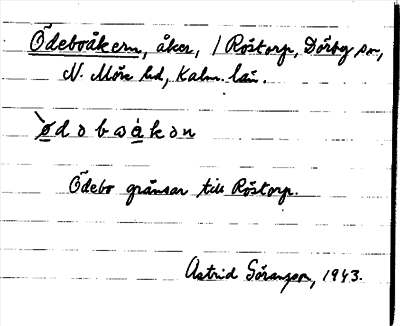 Ödeboåkern, åker, / Röstorp, Dörby sn,
N. Möre hd, Kalm. län.
Ödebo gränsar till Röstorp.
Astrid Göransson, 1943.